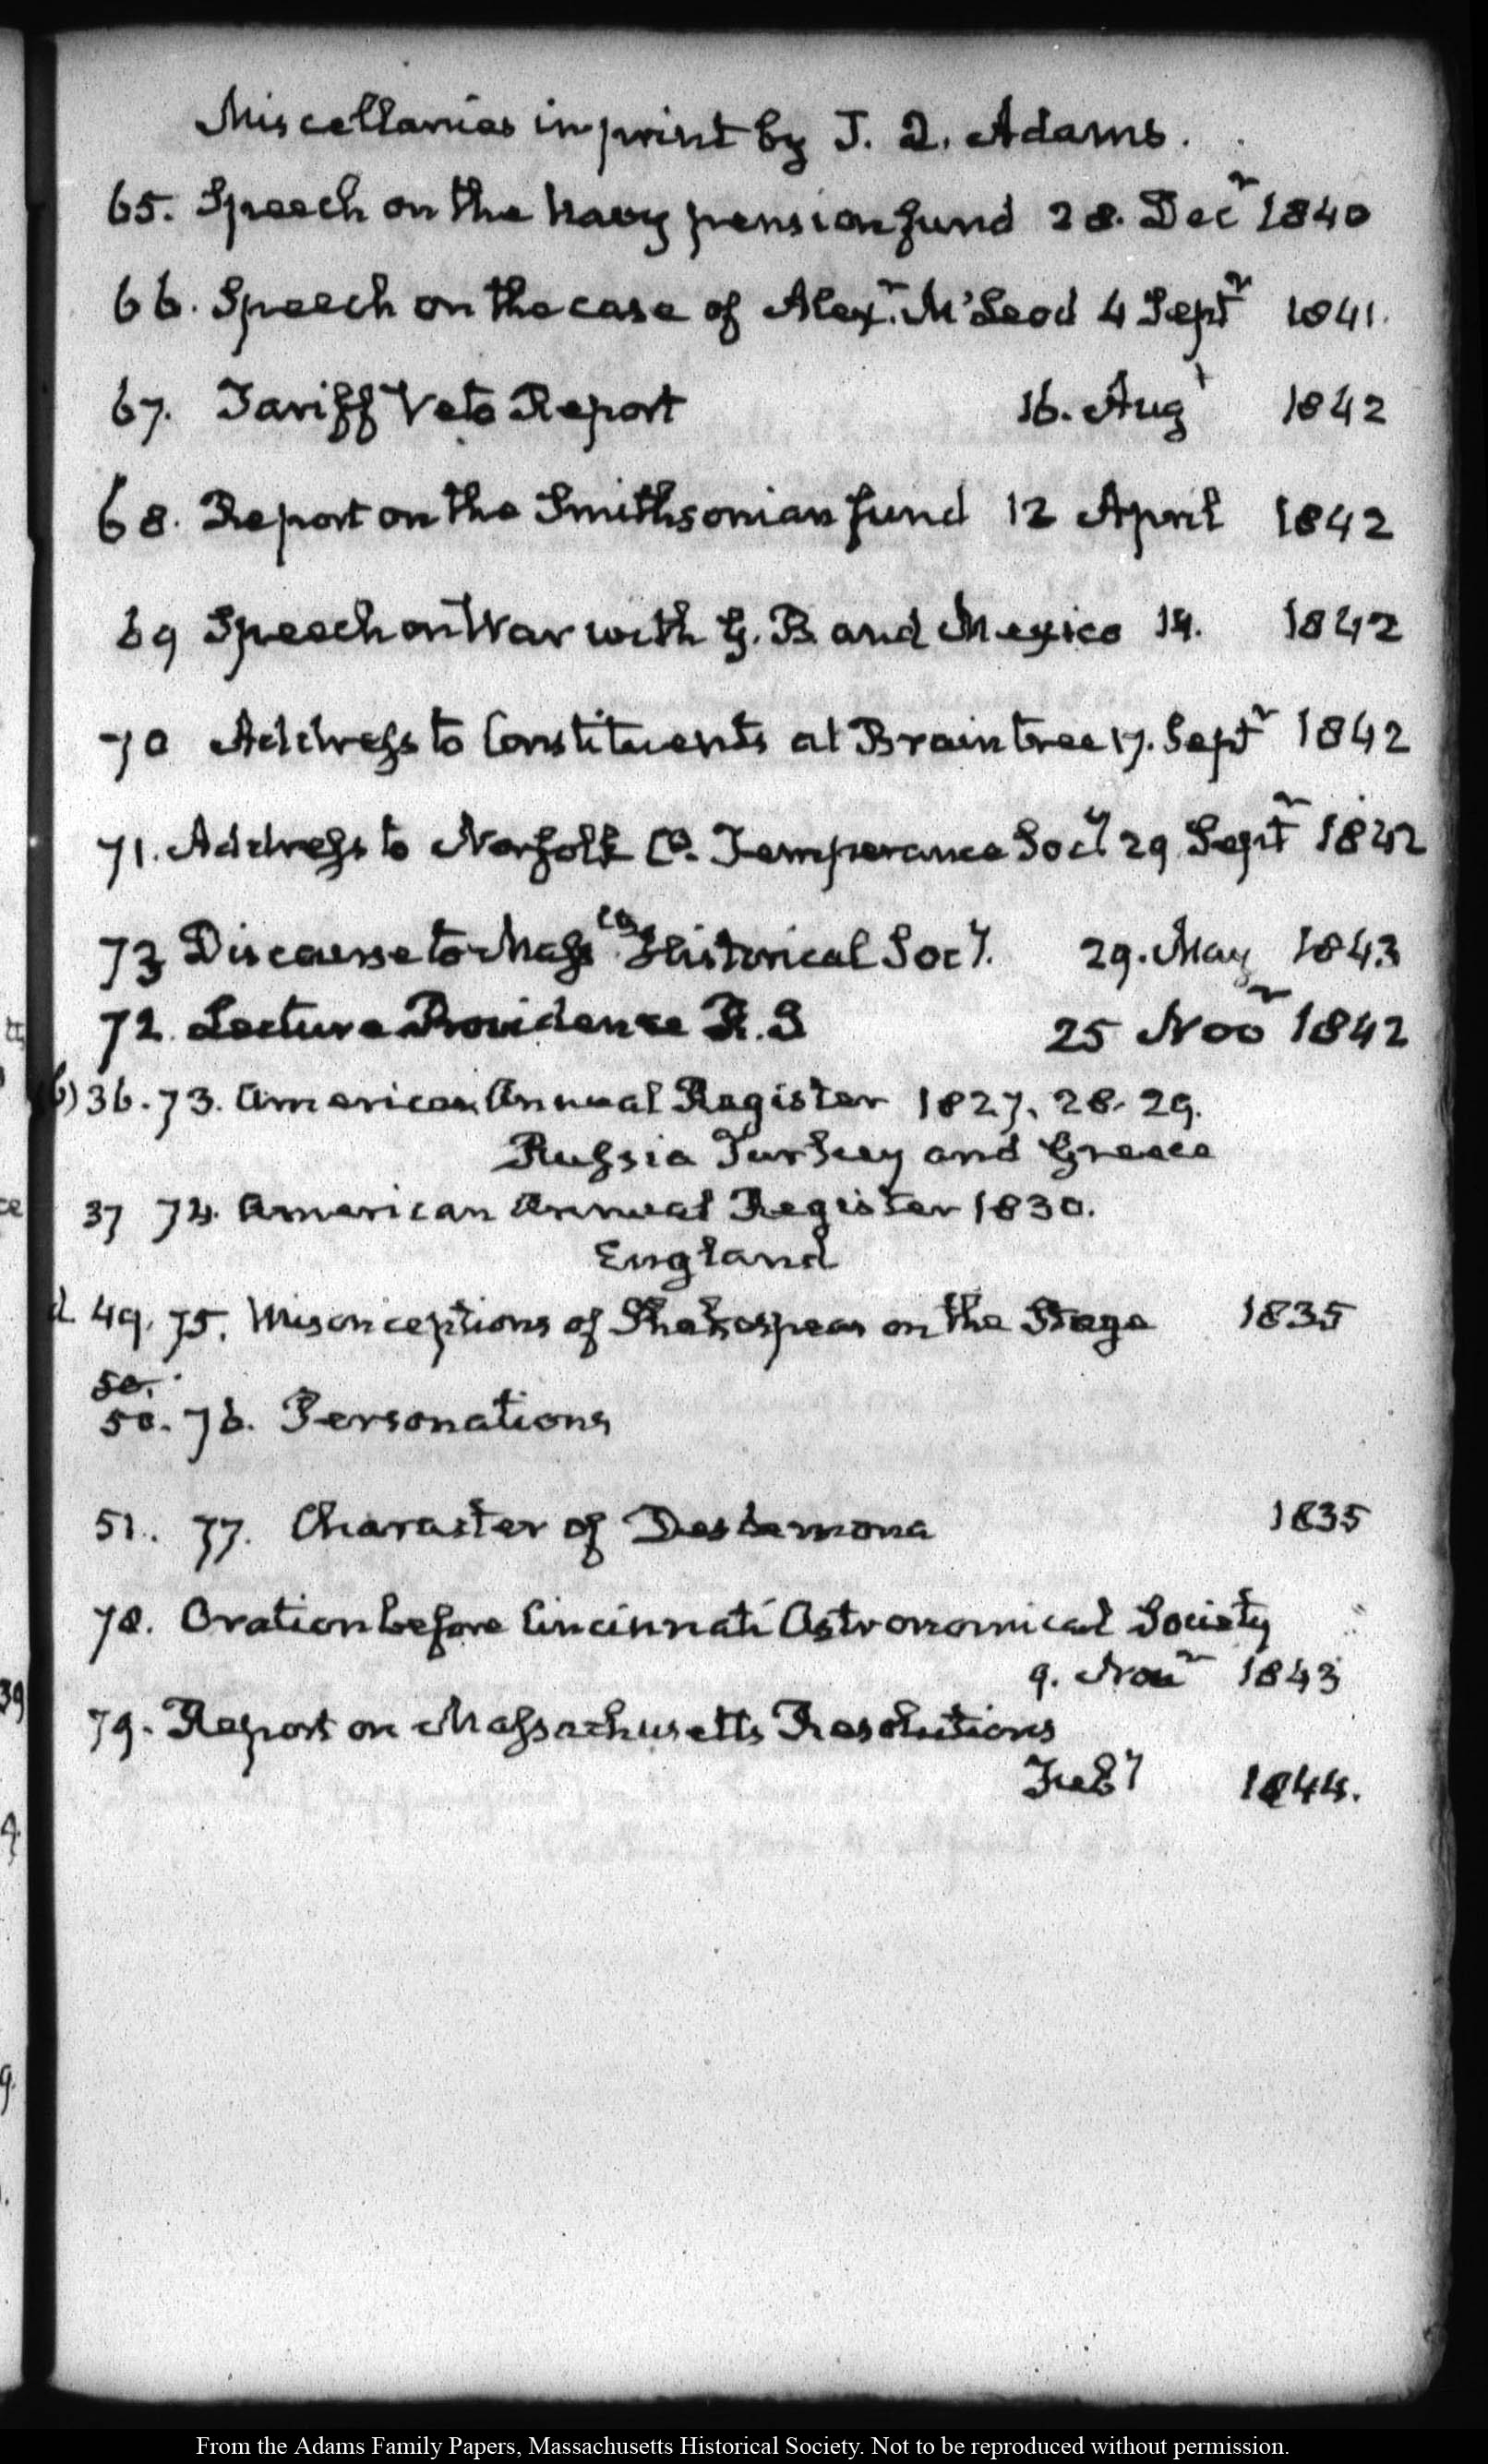 Miscellanies in print by J. Q. Adams.
65. Speech on the Navy pension fund 28. Decr 1840
66. Speech on the case of Alexr. McLeod 4 Septr 1841.
67. Tariff Veto Report 16. Augt 1842
68. Report on the Smithsonian fund 12 April 1842
69 Speech on War with G. B and Mexico 14. 1842
70 Address to Constituents at Braintree 17. Septr 1842
71. Address to Norfolk Co. Temperance Socy 29 Septr 1842
73 Discourse to Masstts Historical Socy. 29. May 1843
72. Lecture Providence R. I 25 Novr 1842
36. 73. American Annual Register 1827, 28. 29.
Russia Turkey and Greece
37 74. American Annual Register 1830.
England
49. 75. Misconceptions of Shakespear on the Stage 1835
50.
50. 76. Personations
51. 77. Character of Desdemona 1835
78. Oration before Cincinnati Astronomical Society
9. Novr 1843
79. Report on Massachusetts Resolutions
Feby 1844.
From the Adams Family Papers, Massachusetts Historical Society. Not to be reproduced without permission.